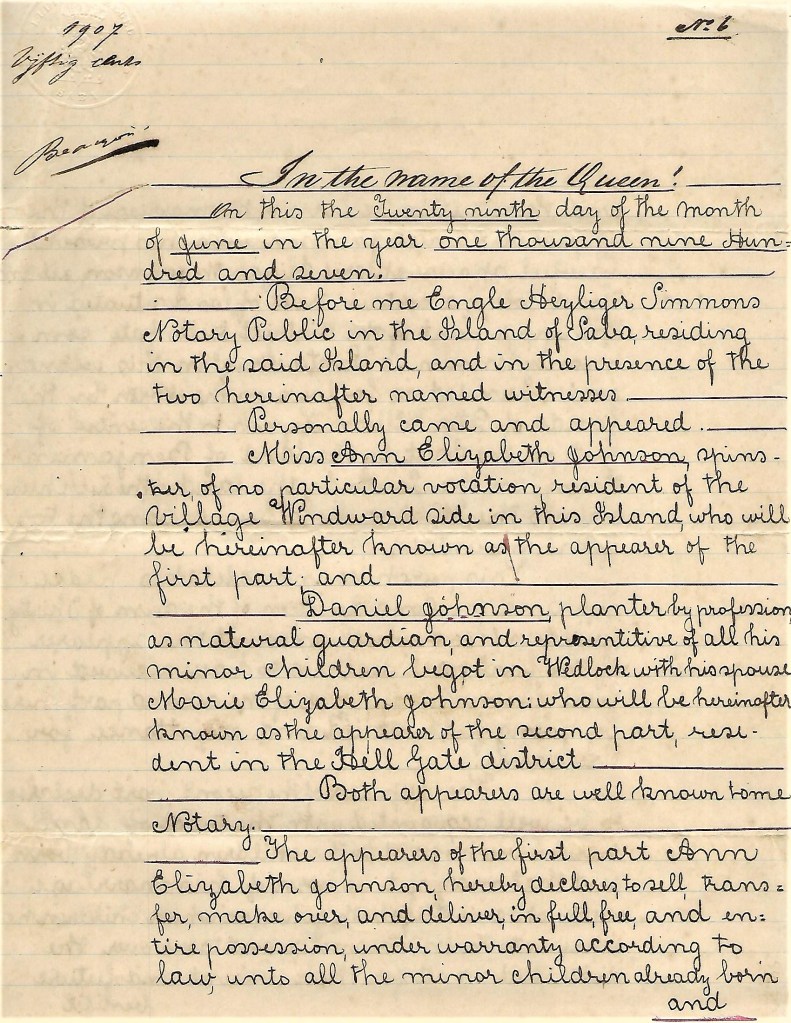 1907
No. 6
Vijftig cents
In the name of the Queen!
On this the Twenty ninth day of the month
of June in the year one thousand nine Hun=
dred and seven.
Before me Engle Heyliger Simmons
Notary Public in the Island of Saba, residing
in the said Island, and in the presence of the
two hereinafter named witnesses
Personally came and appeared.
Miss Ann Elizabeth Johnson, spins-
ter, of no particular vocation, resident of the
Village Windward side in this Island, who will
be hereinafter known as the appearer of the
first part; and
Daniel Johnson, planter by profession,
as natural guardian, and representitive of all his
minor children begot in Wedlock with his spouse
Marie Elizabeth Johnson; who will be hereinafter
known as the appearer of the second part, resi-
dent in the Hell Gate district
Both appearers are well known to me
Notary.
The appearers of the first part Ann
Elizabeth Johnson, hereby declares, to sell, trans=
fer, make over, and deliver, in full, free, and en=
tire possession, under warranty according to
law, unto all the minor children already born
and